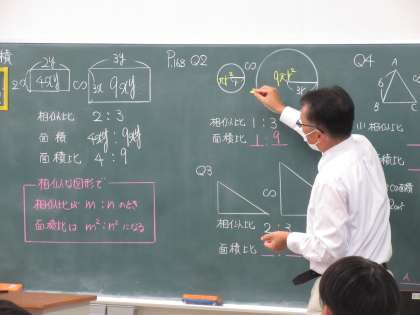 積
2y
3y
2x 4xy ∽ 3x 9xy
相似比 2:3
面積 4xy:9xy
面積比 4:9
相似な図形で
相似比が m:n のとき
面積比は m²:n² になる
P168 Q2
πr² ∽ 9πr²
r 3r
相似比 1:3
面積比 1:9
Q3
∽
相似比 2:3
面積比
Q4
A
B C
相似比
面積比